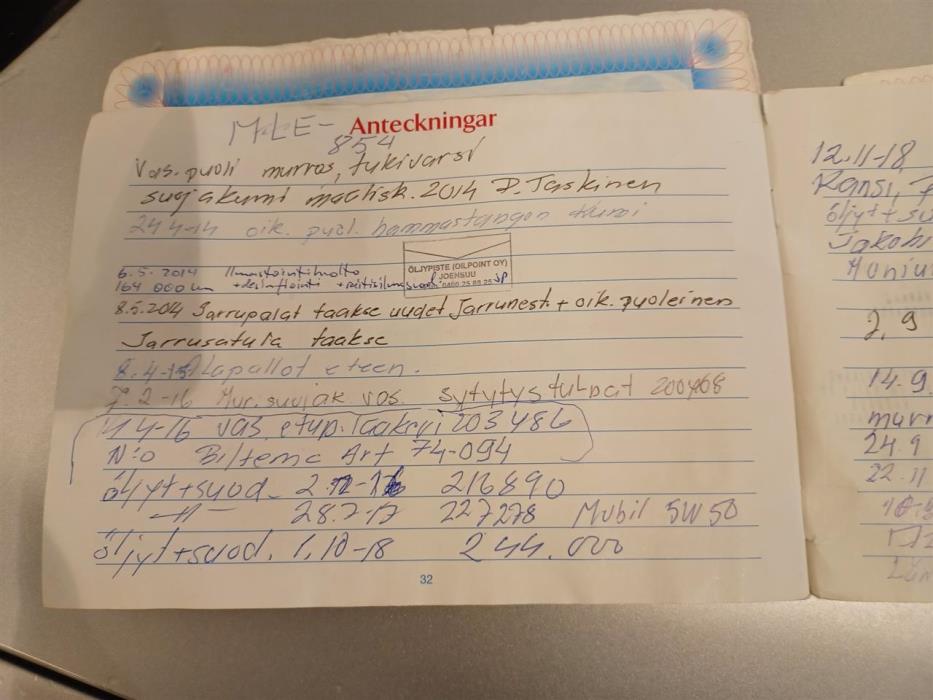 MLE-
Anteckningar
854
Vas. puoli murros, tukivarsi
suojakumi mathsk. 2014 P. Taskinen
24 4-14 oik. puol. hammastangon kumi
ÖLJYPISTE (OILPOINT OY)
JOENSUU
0400 25 88 25 JP
6.5.2014 Ilmastointihuolto
164 000 km + desinfiointi +
8.5.2014 Jarrupalat taakse uudet Jarrunesti + oik. puoleinen
Jarrusatula taakse
8.4-15 Alapallot eteen.
7.2-16 Mur. suojak vas. sytytystulpat 200468
4-16 vas. etup. Laakeri 203486
N:o Biltema Art 74-094
öljyt+suod. 216890
-11- 28.7-17 227278 Mobil 5W50
öljyt+suod. 1.10-18 244.000
32
12.11-18
öljyt+su
Jakohi
2,9
14.9.
murr
24.9
22.11